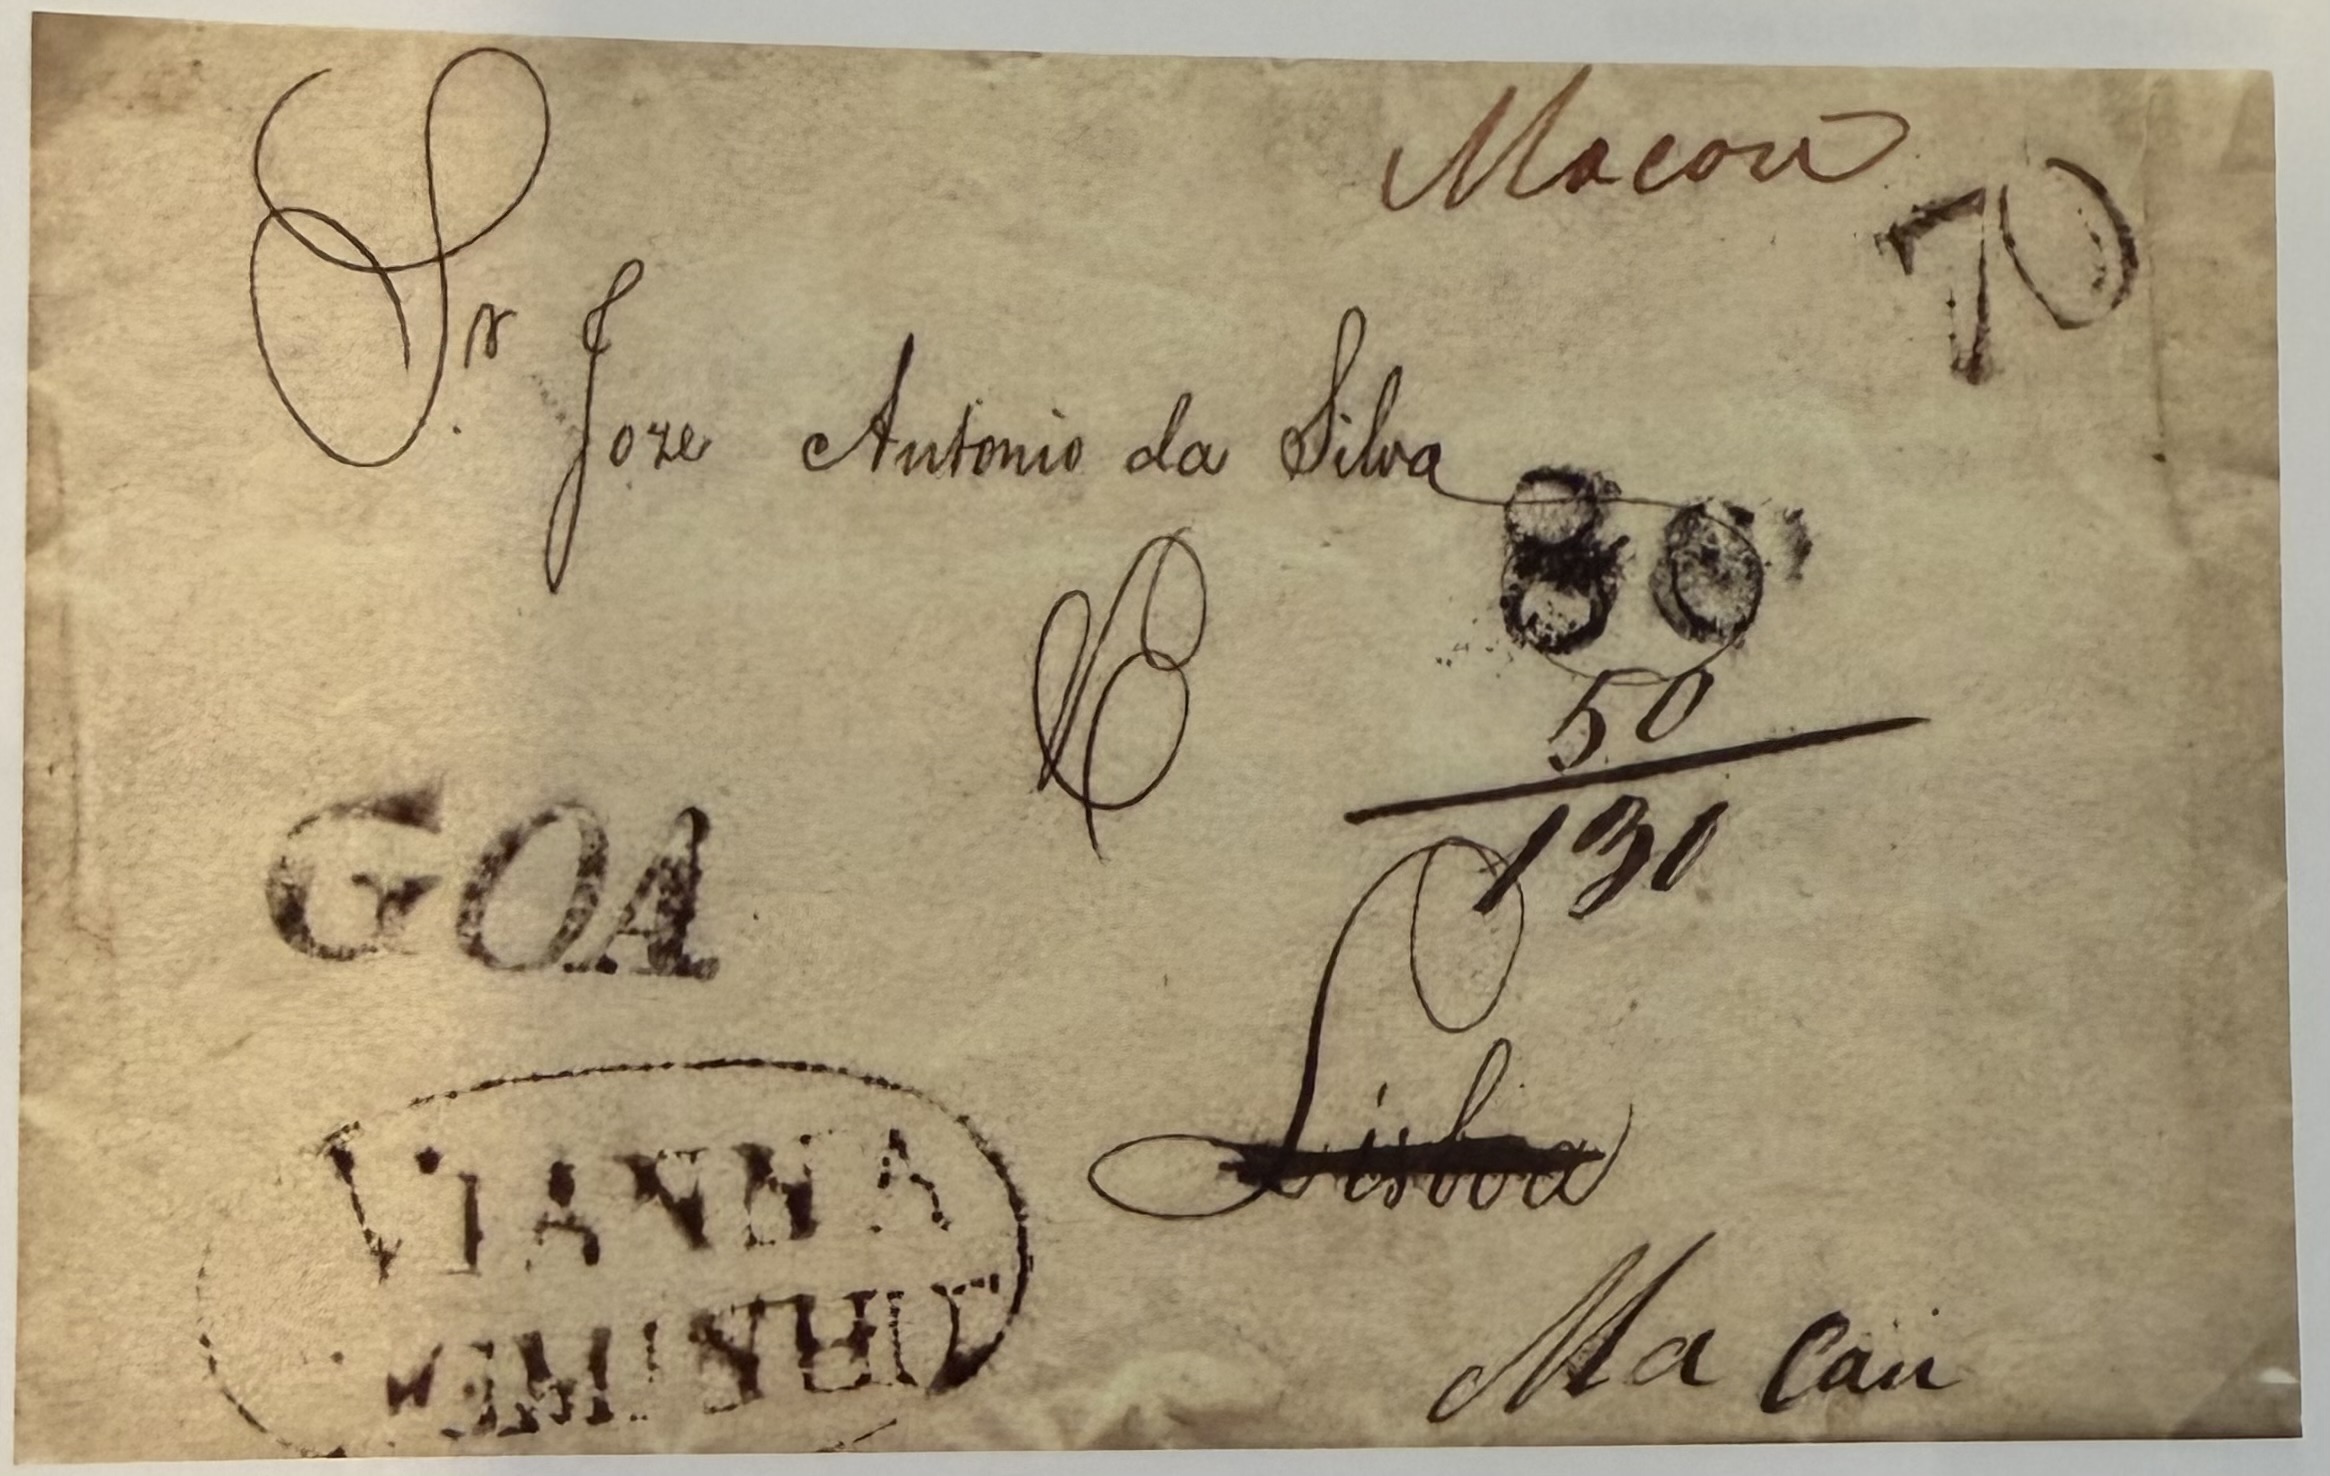 Macau
70
Sr. Joze Antonio da Silva
80
50
130
GOA
Lisboa
VIANNA
DOMINHO
Macau